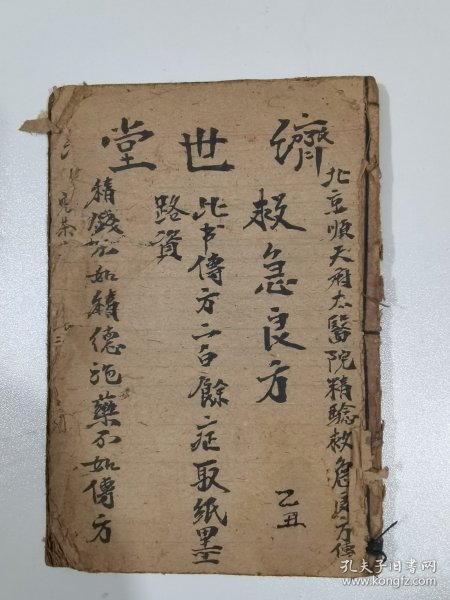 濟世堂
北京順天府太醫院精驗救急良方傳
救急良方
乙丑
此书傳方二百餘症取紙墨
路資
積錢不如積德施藥不如傳方
孔夫子旧书网
www.kongfz.com